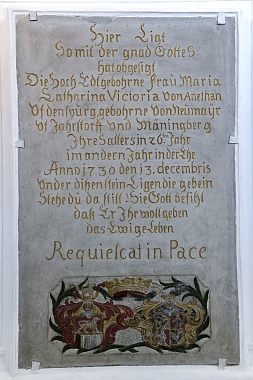 Hier Ligt
So mit der gnad Gottes
hat obgesigt
Die Hoch Edlgebohrne Frau Maria
Catharina Victoria von Anethan
Vf densburg, gebohrne von Neumayr
vf Jahrstorff und Mäningberg
Ihres alters in 26ten Jahr
im andern Jahr in der Ehe
Anno 1730 den 13. decembris
Vnder disen stein Ligen die gebein
Stehe dù da still: Sie Gott befihl
daß Er Ihr woll geben
das Ewige Leben
Requiescat in Pace